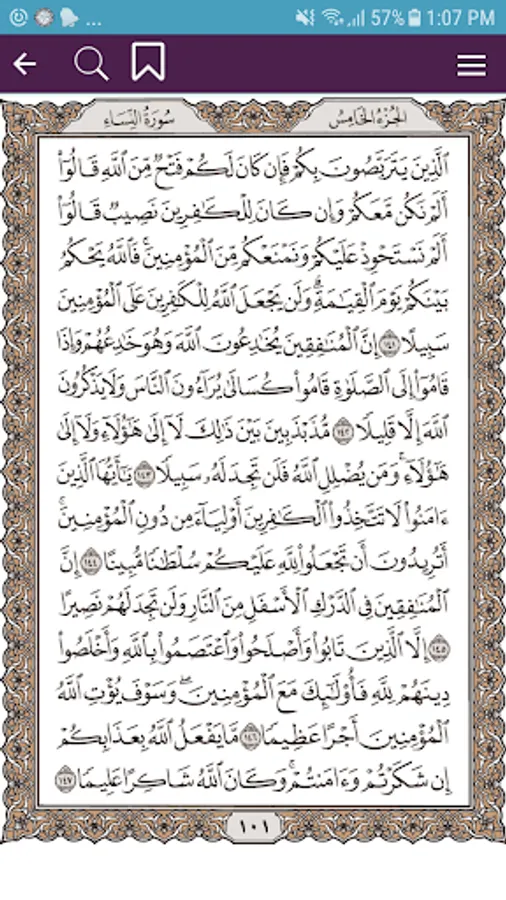 ... 57% 1:07 PM
الجزء الخامس سورة النساء
ٱلَّذِينَ يَتَرَبَّصُونَ بِكُمْ فَإِن كَانَ لَكُمْ فَتْحٌ مِّنَ ٱللَّهِ قَالُوٓا۟
أَلَمْ نَكُن مَّعَكُمْ وَإِن كَانَ لِلْكَـٰفِرِينَ نَصِيبٌ قَالُوٓا۟
أَلَمْ نَسْتَحْوِذْ عَلَيْكُمْ وَنَمْنَعْكُم مِّنَ ٱلْمُؤْمِنِينَ ۚ فَٱللَّهُ يَحْكُمُ
بَيْنَكُمْ يَوْمَ ٱلْقِيَـٰمَةِ ۗ وَلَن يَجْعَلَ ٱللَّهُ لِلْكَـٰفِرِينَ عَلَى ٱلْمُؤْمِنِينَ
سَبِيلًا ١٤١ إِنَّ ٱلْمُنَـٰفِقِينَ يُخَـٰدِعُونَ ٱللَّهَ وَهُوَ خَـٰدِعُهُمْ وَإِذَا
قَامُوٓا۟ إِلَى ٱلصَّلَوٰةِ قَامُوا۟ كُسَالَىٰ يُرَآءُونَ ٱلنَّاسَ وَلَا يَذْكُرُونَ
ٱللَّهَ إِلَّا قَلِيلًا ١٤٢ مُّذَبْذَبِينَ بَيْنَ ذَٰلِكَ لَآ إِلَىٰ هَـٰٓؤُلَآءِ وَلَآ إِلَىٰ
هَـٰٓؤُلَآءِ ۚ وَمَن يُضْلِلِ ٱللَّهُ فَلَن تَجِدَ لَهُۥ سَبِيلًا ١٤٣ يَـٰٓأَيُّهَا ٱلَّذِينَ
ءَامَنُوا۟ لَا تَتَّخِذُوا۟ ٱلْكَـٰفِرِينَ أَوْلِيَآءَ مِن دُونِ ٱلْمُؤْمِنِينَ ۚ
أَتُرِيدُونَ أَن تَجْعَلُوا۟ لِلَّهِ عَلَيْكُمْ سُلْطَـٰنًا مُّبِينًا ١٤٤ إِنَّ
ٱلْمُنَـٰفِقِينَ فِى ٱلدَّرْكِ ٱلْأَسْفَلِ مِنَ ٱلنَّارِ وَلَن تَجِدَ لَهُمْ نَصِيرًا
١٤٥ إِلَّا ٱلَّذِينَ تَابُوا۟ وَأَصْلَحُوا۟ وَٱعْتَصَمُوا۟ بِٱللَّهِ وَأَخْلَصُوا۟
دِينَهُمْ لِلَّهِ فَأُو۟لَـٰٓئِكَ مَعَ ٱلْمُؤْمِنِينَ ۖ وَسَوْفَ يُؤْتِ ٱللَّهُ
ٱلْمُؤْمِنِينَ أَجْرًا عَظِيمًا ١٤٦ مَّا يَفْعَلُ ٱللَّهُ بِعَذَابِكُمْ
إِن شَكَرْتُمْ وَءَامَنتُمْ ۚ وَكَانَ ٱللَّهُ شَاكِرًا عَلِيمًا ١٤٧
١٠١